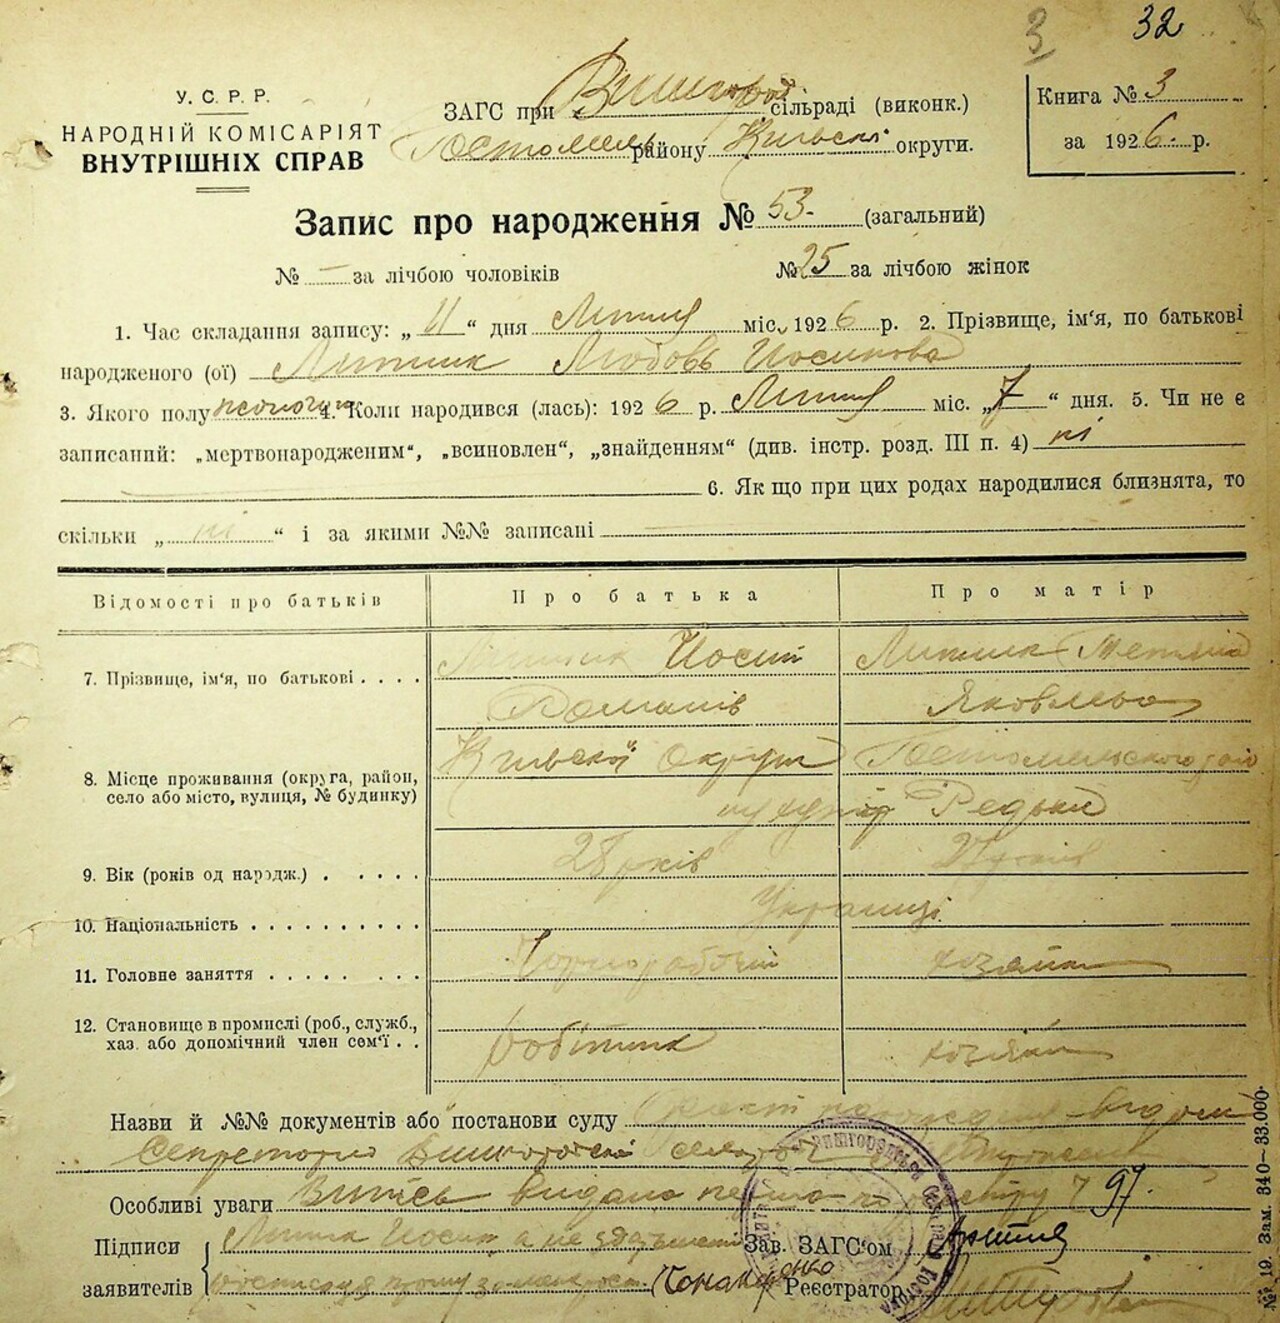 3 32
У. С. Р. Р.
НАРОДНІЙ КОМІСАРІЯТ
ВНУТРІШНІХ СПРАВ
ЗАГС при Вишгород сільраді (виконк.)
Гостомель району Київськ округи.
Книга № 3
за 1926 р.
Запис про народження № 53. (загальний)
№ — за лічбою чоловіків № 25 за лічбою жінок
1. Час складання запису: „ 11 “ дня Липня міс. 1926 р. 2. Прізвище, ім'я, по батькові
народженого (ої) Литник Любовь Иосипова
3. Якого полу жіночу 4. Коли народився (лась): 1926 р. Липня міс. „ 7 “ дня. 5. Чи не є
записаний: „мертвонародженим“, „всиновлен“, „знайденням“ (див. інстр. розд. III п. 4) ні
6. Як що при цих родах народилися близнята, то
скільки „ ні “ і за якими №№ записані
Відомості про батьків Про батька Про матір
7. Прізвище, ім'я, по батькові . . . . Литник Иосип Литник Тетяна
Романів Яковльва
8. Місце проживання (округа, район, Київської Округи Гостомельского рай
село або місто, вулиця, № будинку) хутір Редьки
9. Вік (років од народж.) . . . . . 28 років 27 років
10. Національність . . . . . . . . . . Українці
11. Головне заняття . . . . . . . . Чорноробочий хозяйка
12. Становище в промислі (роб., служб.,
хаз. або допомічний член сем'ї . . Робітник хозяйка
Назви й №№ документів або постанови суду видан
Секретарь Вишгородской сельради
Особливі уваги Витісь видана перша по реєстру 97.
Підписи Литник Иосип а не Зав. ЗАГС'ом
заявителів Реєстратор
№ 19. Зам. 340—33.000.